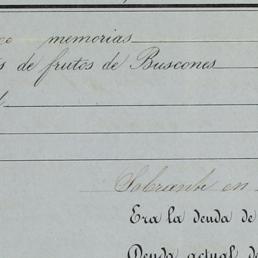 memorias
de frutos de Buscones
Sobrante en
Era la deuda de
Deuda actual de